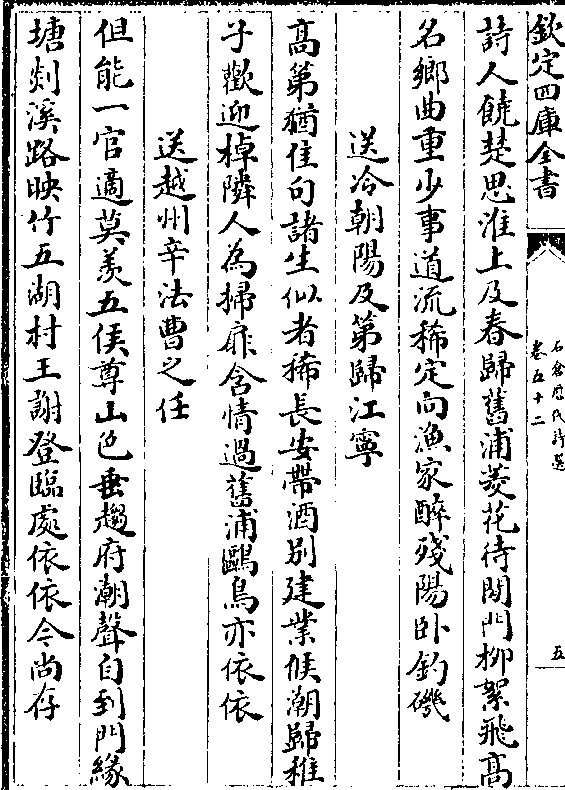 欽定四庫全書
石倉歷代詩選
卷五十二
五
詩人饒楚思淮上及春歸舊浦菱花待閉門柳絮飛高
名鄉曲重少事道流稀定向漁家醉殘陽卧釣磯
送冷朝陽及第歸江寧
高第猶佳句諸生似者稀長安帶酒别建業候潮歸稚
子歡迎棹隣人為掃扉含情過舊浦鷗鳥亦依依
送越州辛法曹之任
但能一官適莫羨五侯尊山色垂趨府潮聲自到門緣
塘剡溪路映竹五湖村王謝登臨處依依今尚存